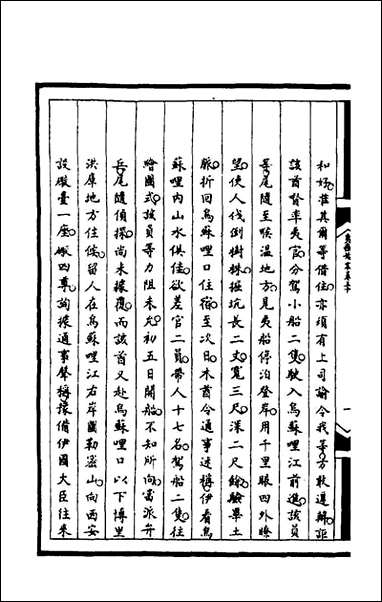 和好准其爾等借住亦須有上司諭令我等方敢遵辦詎
該酋督率夷官分駕小船二隻駛入烏蘇哩江前進該員
等尾隨至喉溫地方見夷船停泊登岸用千里眼四外瞭
望使人伐倒樹株挖坑長二丈寬三尺深二尺餘驗畢土
脈折回烏蘇哩口住宿至次日木酋令通事述稱伊看烏
蘇哩內山水俱佳欲差官二員帶人十七名駕船二隻往
繪圖式該員等力阻未允初五日開船不知所向當派弁
兵尾隨偵探尚未據覆而該酋又赴烏蘇哩口以下博里
洪庫地方住俟留人在烏蘇哩江右岸圖勒密山向西安
設礮臺一座礮四尊詢據通事聲稱豫備伊國大臣往來